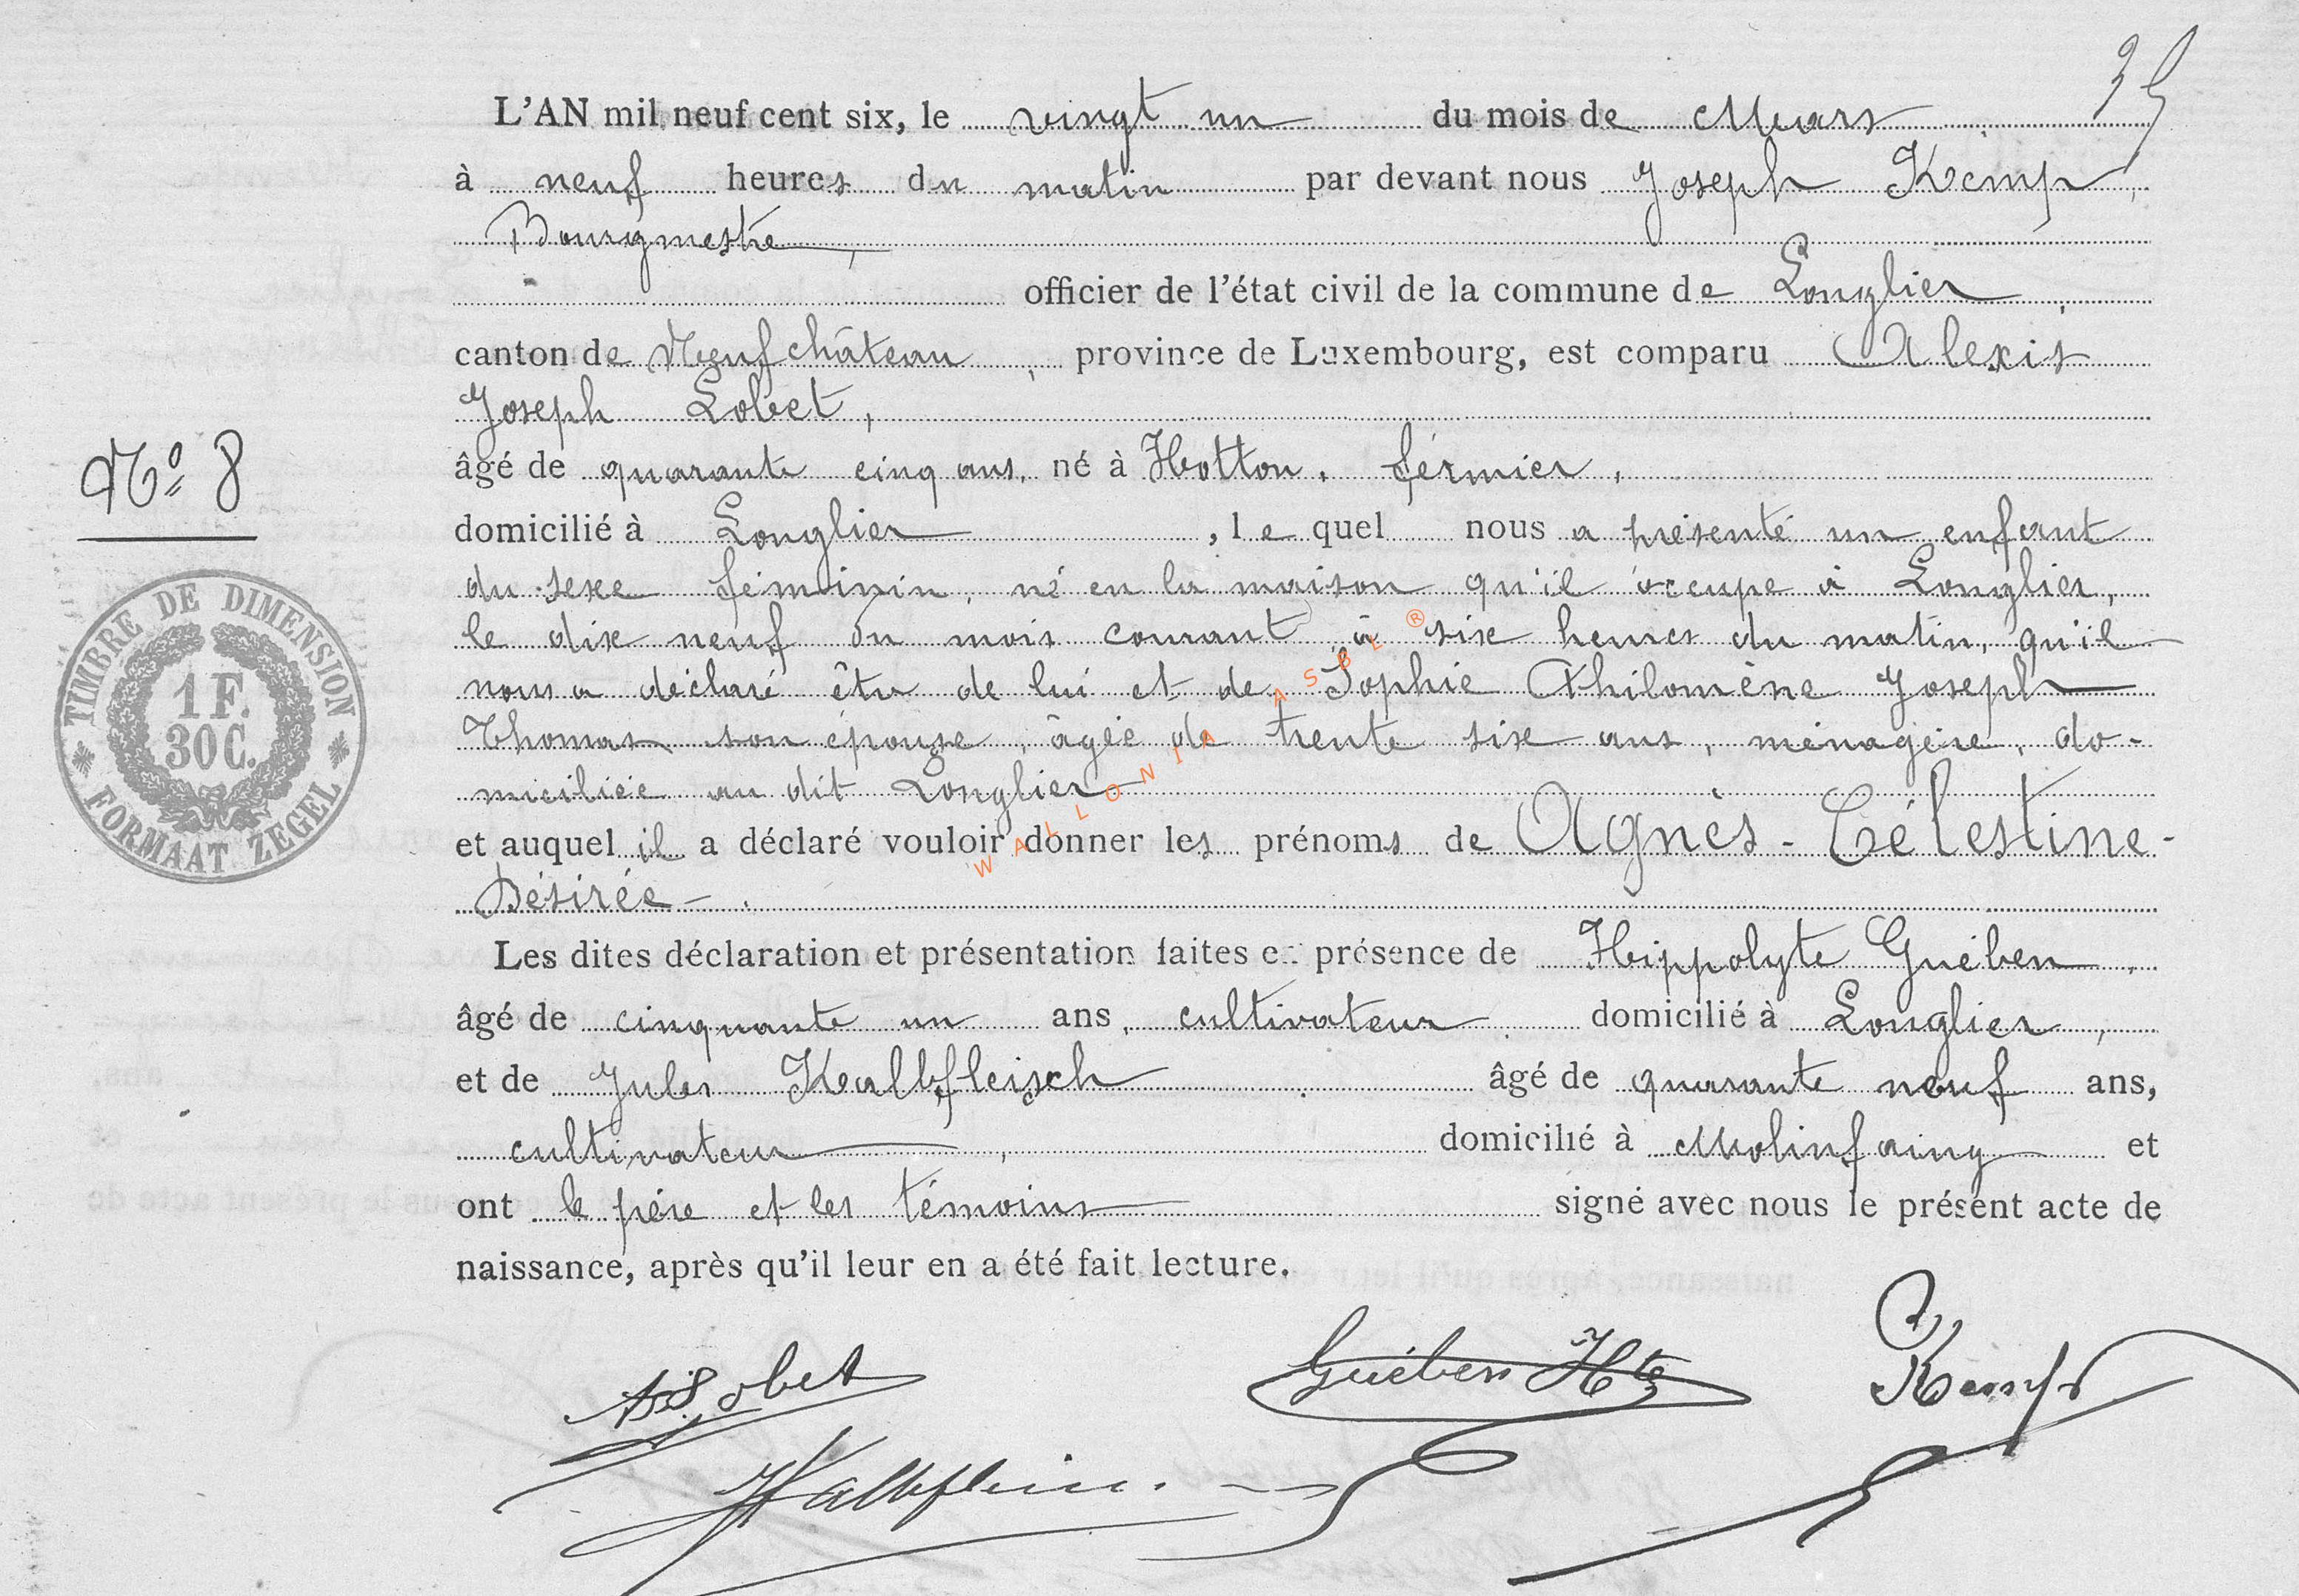 35
L'AN mil neuf cent six, le vingt un du mois de Mars
à neuf heures du matin par devant nous Joseph Kemp,
Bourgmestre,
officier de l'état civil de la commune de Longlier,
canton de Neufchâteau, province de Luxembourg, est comparu Alexis
Joseph Lobet,
âgé de quarante cinq ans, né à Hotton, fermier,
Nº 8
domicilié à Longlier, le quel nous a présenté un enfant
du sexe féminin, né en la maison qu'il occupe à Longlier,
le dix neuf du mois courant à six heures du matin, qu'il
nous a déclaré être de lui et de Sophie Philomène Joseph
Thomas son épouse, âgée de trente six ans, ménagère, do-
miciliée au dit Longlier
et auquel il a déclaré vouloir donner les prénoms de Agnès - Célestine -
Désirée -.
TIMBRE DE DIMENSION
1 F.
30 C.
FORMAAT ZEGEL
WALLONIA ASBL ®
Les dites déclaration et présentation faites en présence de Hippolyte Guében,
âgé de cinquante un ans, cultivateur, domicilié à Longlier,
et de Jules Kalbfleisch, âgé de quarante neuf ans,
cultivateur, domicilié à Molinfaing et
ont le père et les témoins signé avec nous le présent acte de
naissance, après qu'il leur en a été fait lecture.
Lobet
Guében Hte
Kemp